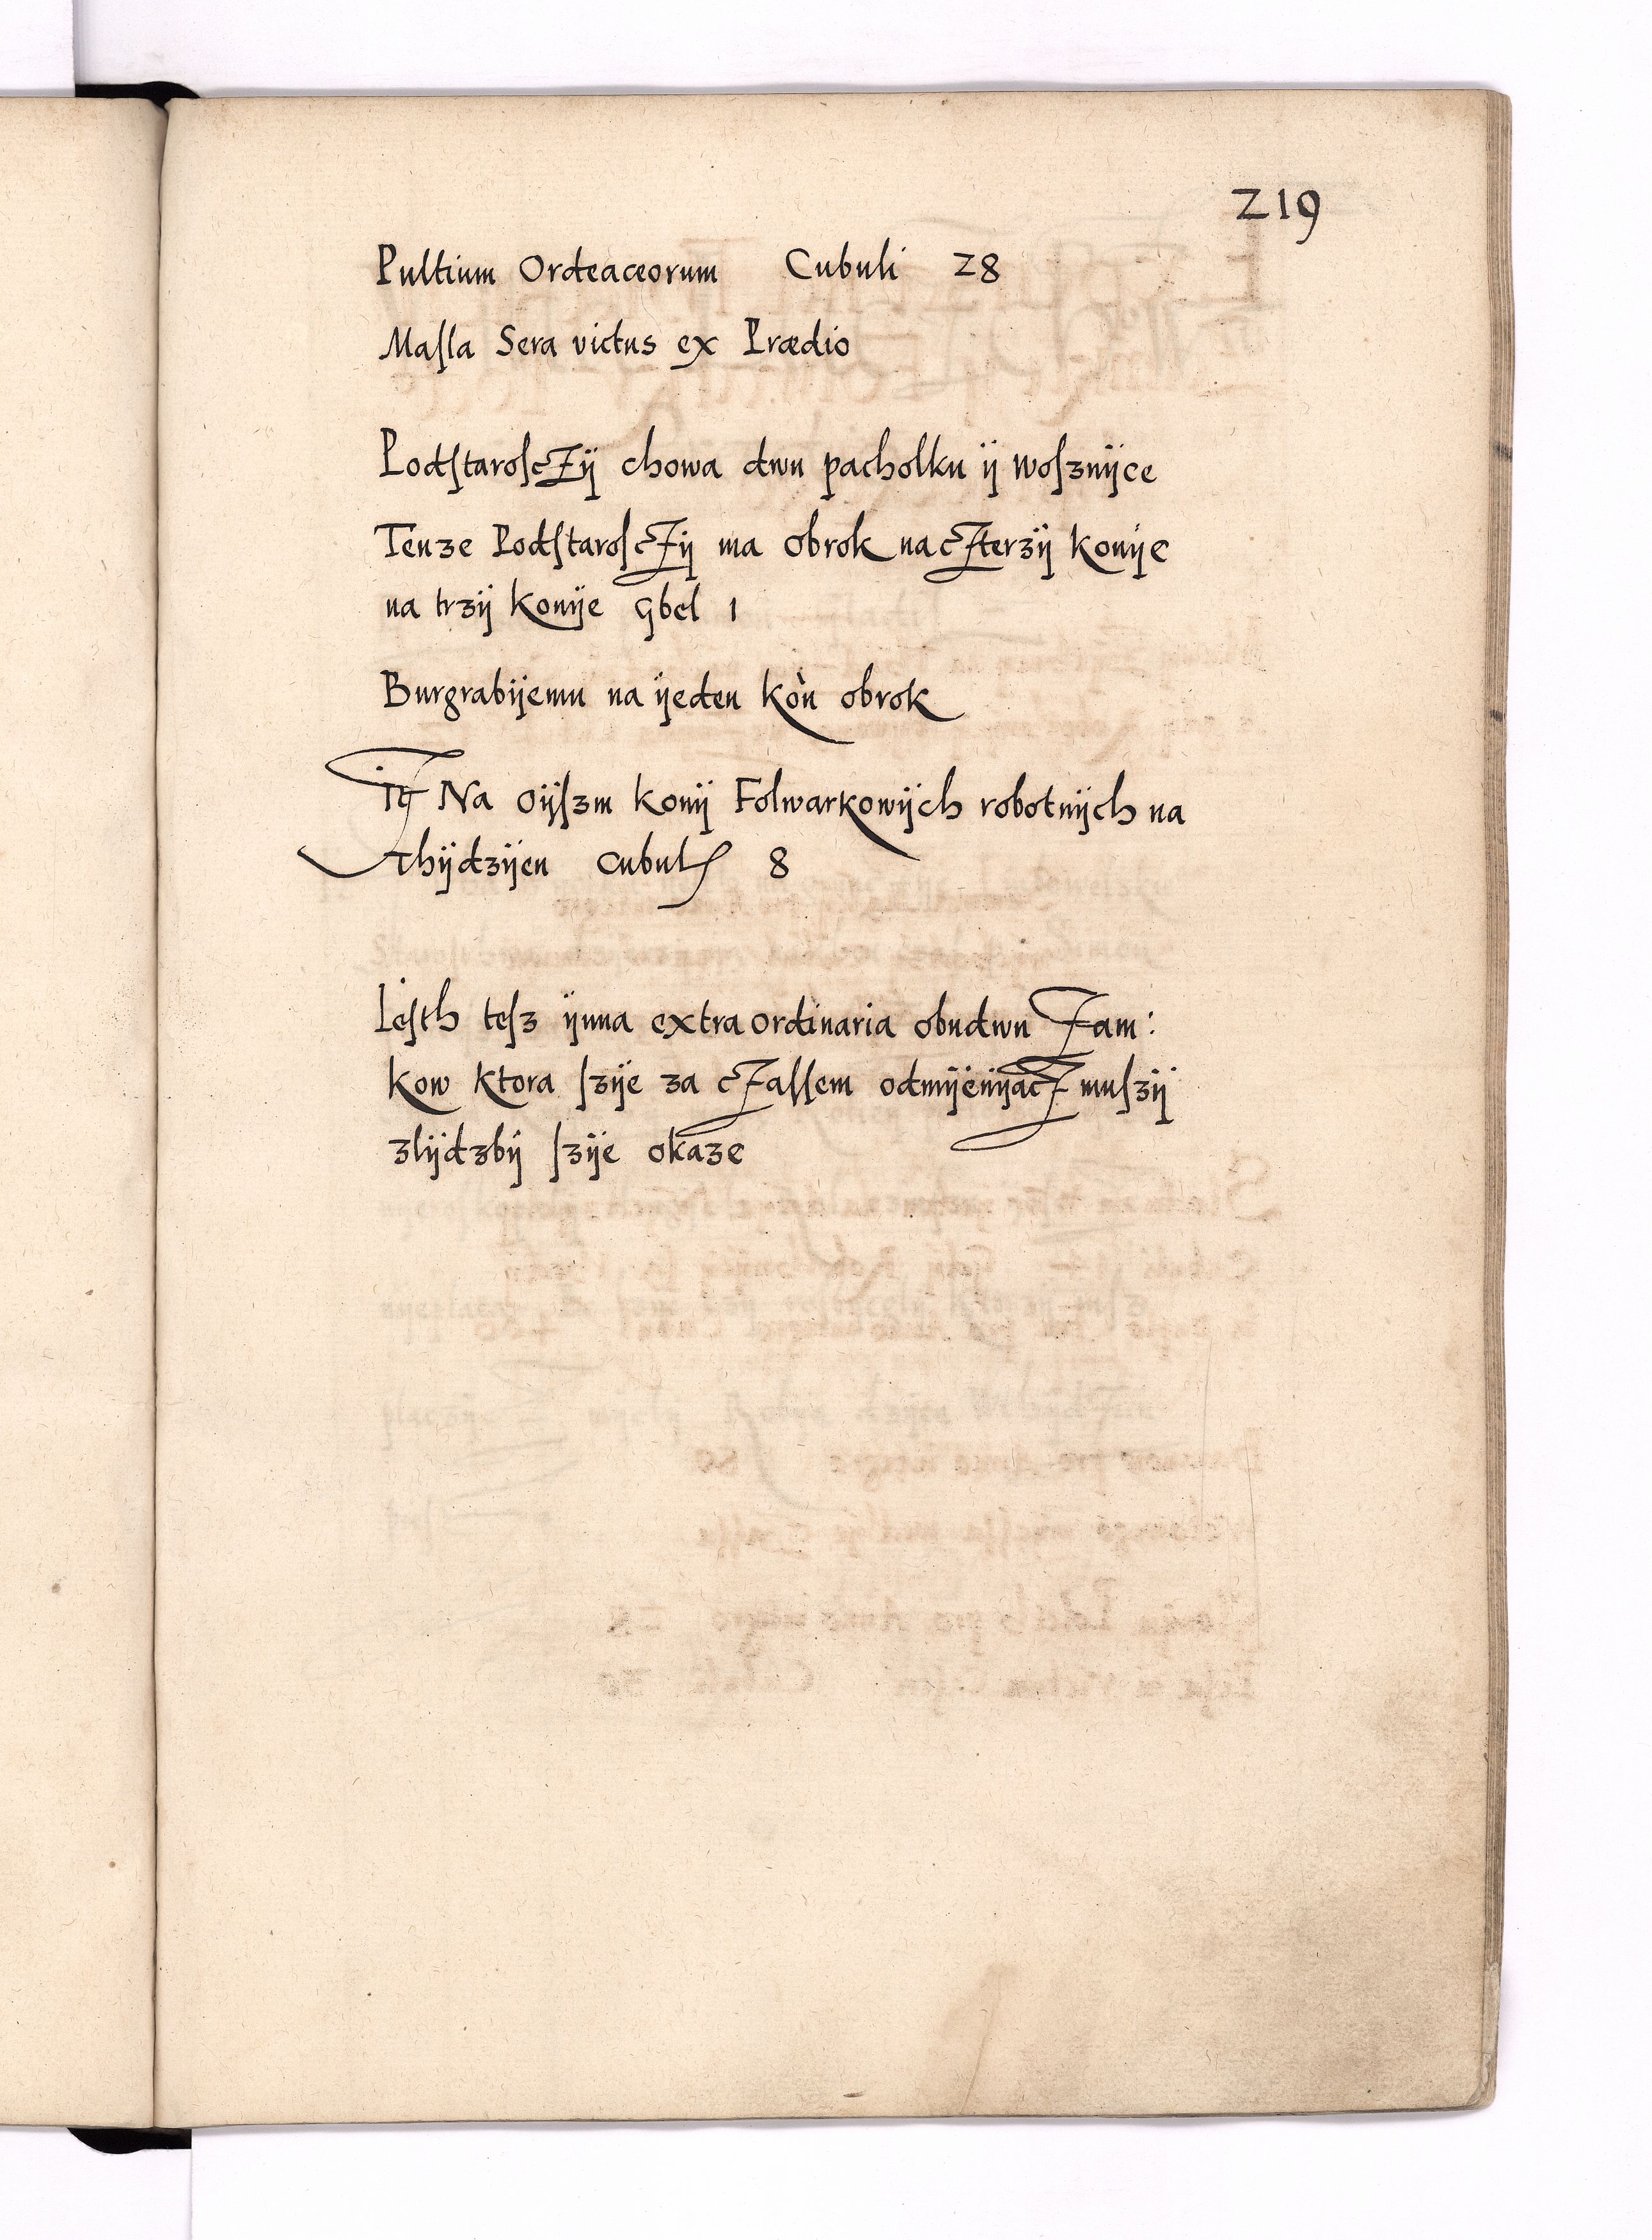 219
Pultium Ordeaceorum Cubuli 28
Maſla Sera victus ex Prædio
Podſtaroſczÿ chowa dwu pacholku ÿ woſznÿce
Tenze Podſtaroſczÿ ma obrok na czterzÿ konÿe
na trzÿ konÿe Gbel 1
Burgrabÿemu na ÿeden kòn obrok
Na oÿſzm konÿ Folwarkowÿch robotnÿch na
thÿdzÿen Cubul 8
Ieſth teſz ÿnna extraordinaria obudwu Zam:
kow ktora ſzÿe za czaſſem odmÿenÿacz muſzÿ
zlÿdzbÿ ſzÿe okaze